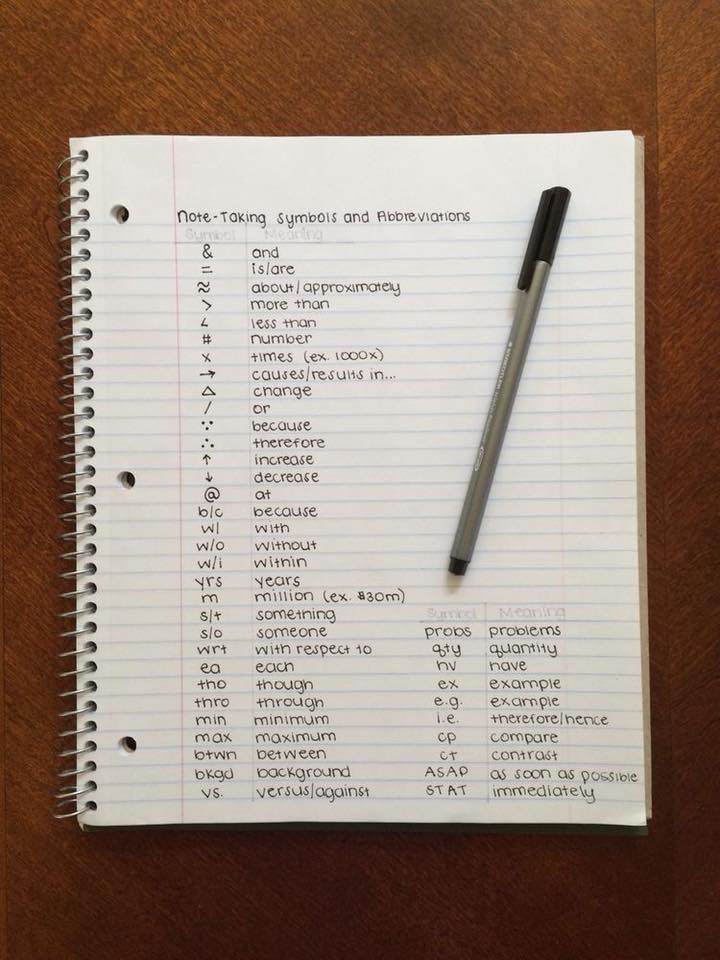 Note-Taking Symbols and Abbreviations
Symbol Meaning
& and
= is/are
≈ about/approximately
> more than
< less than
# number
x times (ex. 1000x)
→ causes/results in...
△ change
/ or
∵ because
∴ therefore
↑ increase
↓ decrease
@ at
b/c because
w/ with
w/o without
w/i within
yrs years
m million (ex. $30m)
s/t something
s/o someone
wrt with respect to
ea each
tho though
thro through
min minimum
max maximum
btwn between
bkgd background
vs. versus/against
Symbol Meaning
probs problems
qty quantity
hv have
ex example
e.g. example
i.e. therefore/hence
cp compare
ct contrast
ASAP as soon as possible
STAT immediately